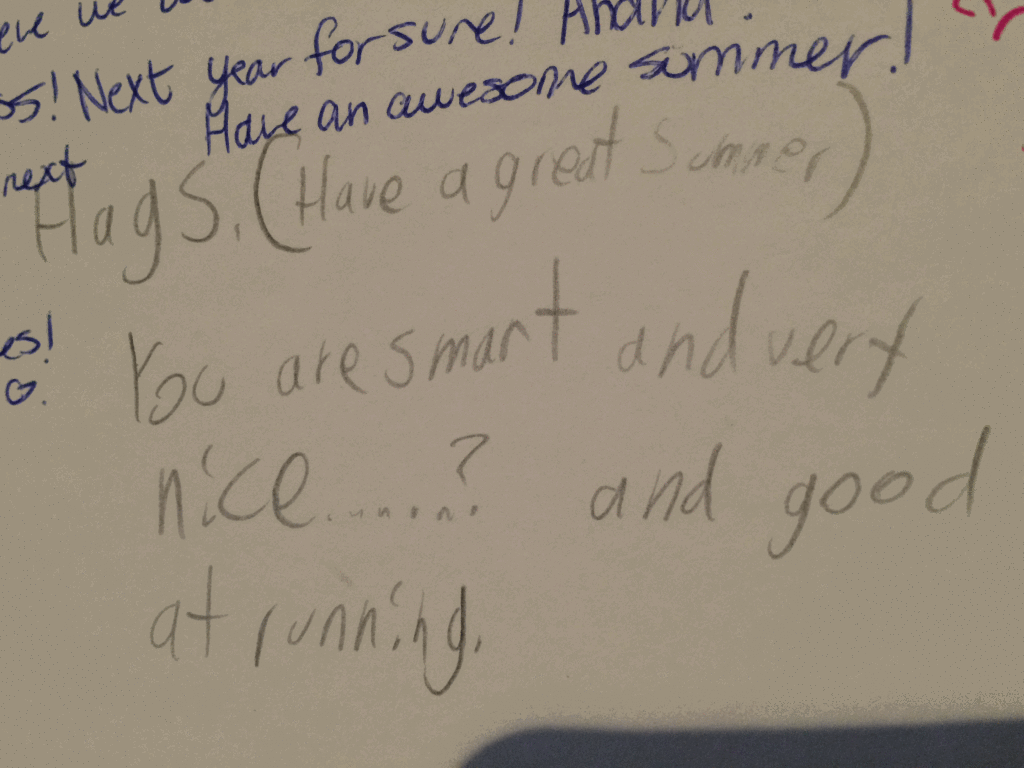 we
ss! Next year for sure! Ahaha!
Have an awesome summer!
next
HagS. (Have a great Summer)
es!
You are smart and very
nice.......? and good
at running.